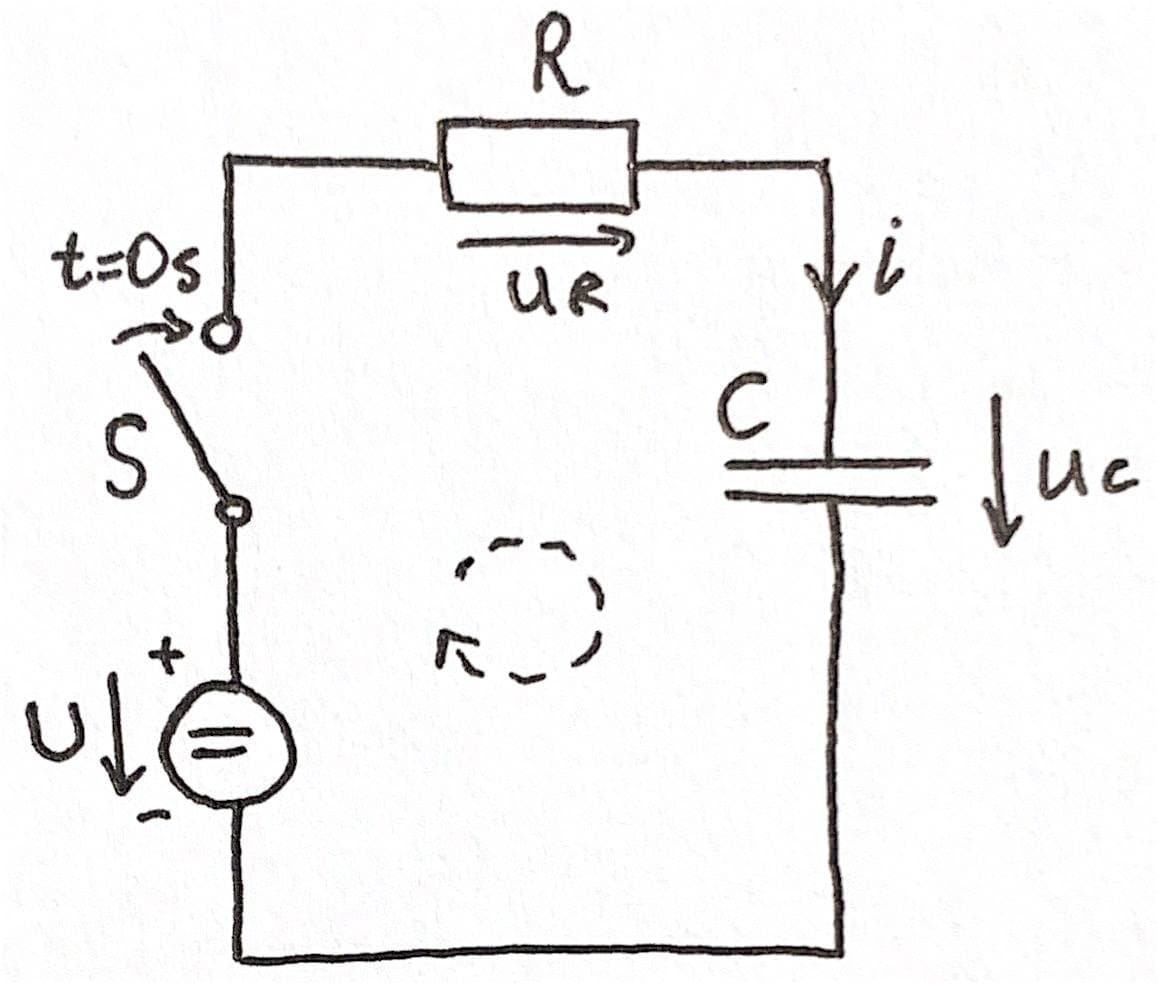 R
t=0s
uR
i
S
C
uc
+
U
=
-